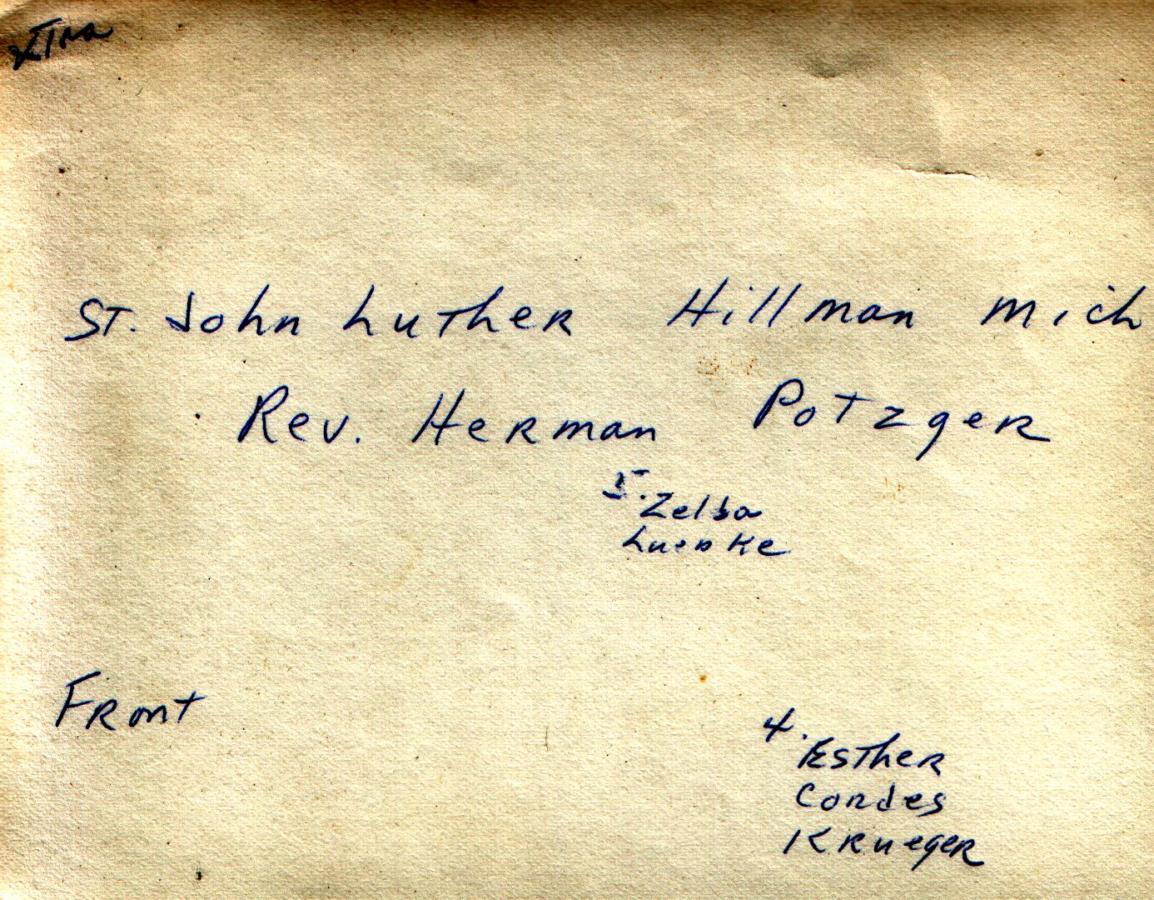 xTra
ST. John Luther Hillman Mich
Rev. Herman Potzger
5. Zelba
Luepke
Front
4. Esther
Cordes
Krueger